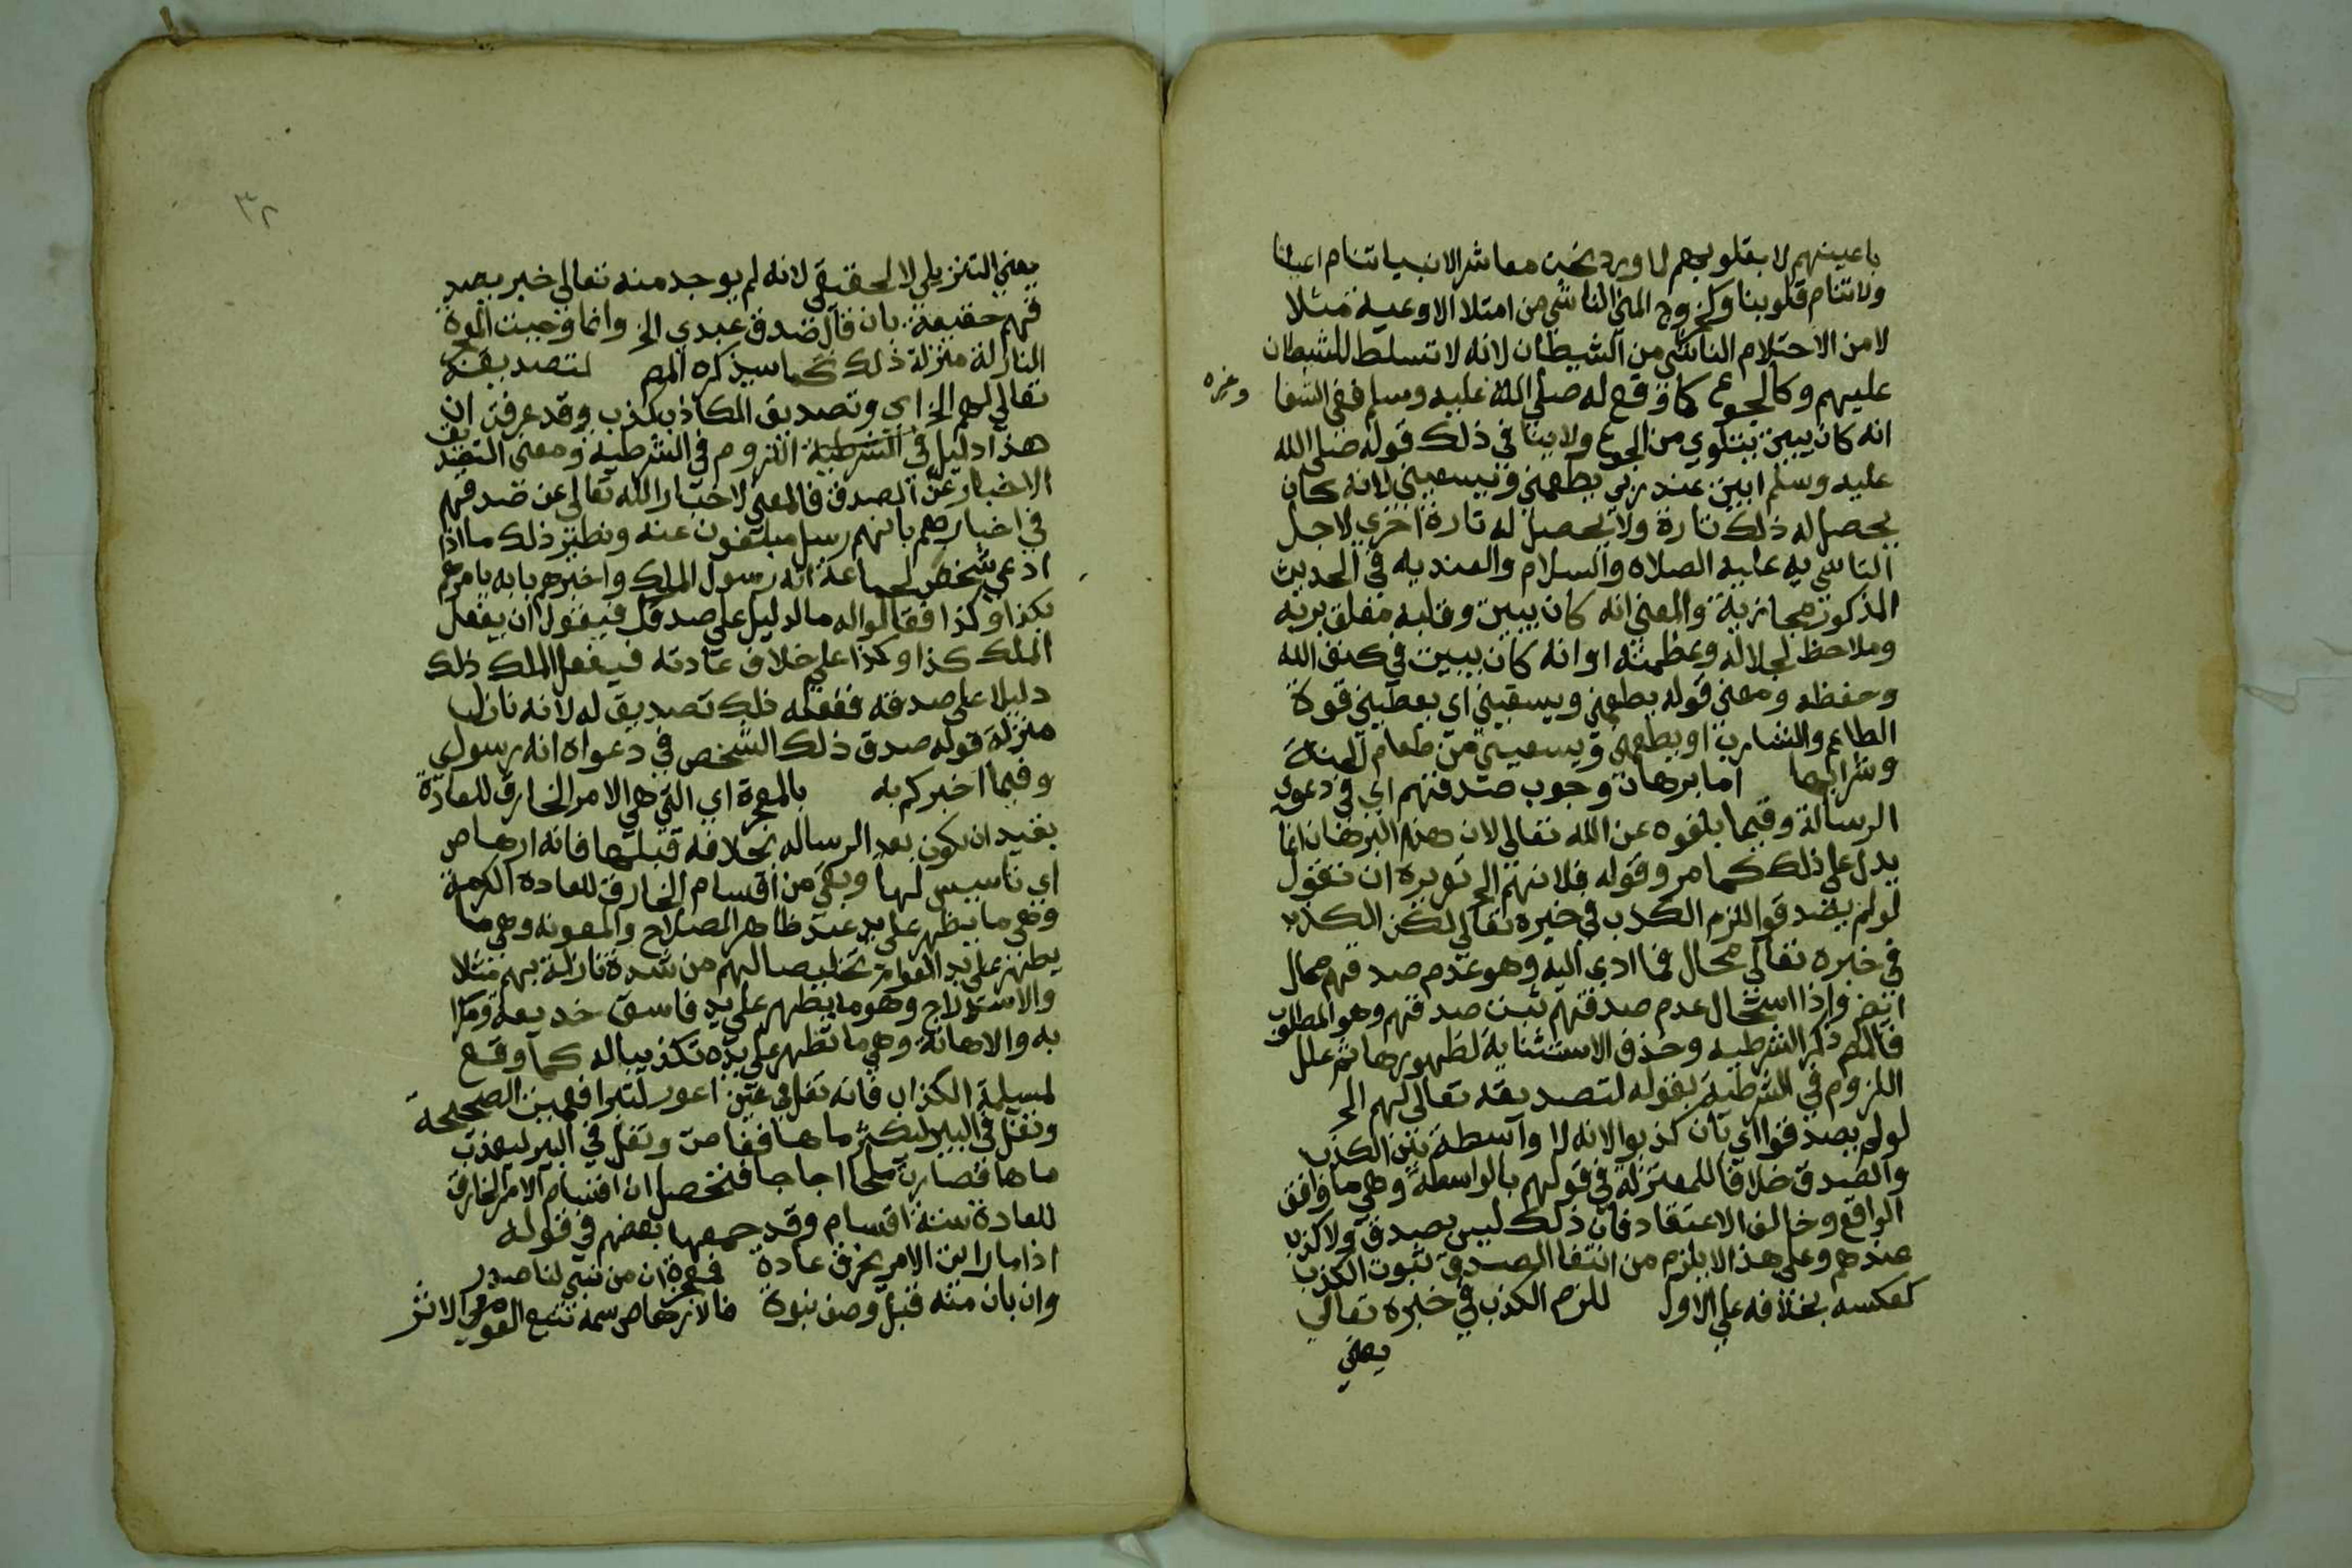 باعينهم لا بقلوبهم لما ورد نحن معاشر الانبيا تنام اعيننا
ولا تنام قلوبنا وكخروج المني الناشي من امتلا الاوعية مثلا
لا من الاحتلام الناشي من الشيطان لانه لا تسلط للشيطان
عليهم وكالجوع كما وقع له صلى الله عليه وسلم ففي الشفا وغيره
انه كان يبيت يتلوي من الجوع ولا ينافي ذلك قوله صلى الله
عليه وسلم ابيت عند ربي يطعمني ويسقيني لانه كان
يحصل له ذلك تارة ولا يحصل له تارة اخري لاجل
التاسي به عليه الصلاه والسلام والعنديه في الحديث
المذكور مجازية والمعني انه كان يبيت وقلبه معلق بربه
وملاحظ لجلاله وعظمته او انه كان يبيت في كنف الله
وحفظه ومعني قوله يطعمني ويسقيني اي يعطيني قوة
الطاعم والشارب او يطعمني ويسقيني من طعام الجنة
وشرابها اما برهان وجوب صدقهم اي في دعوي
الرسالة وفيما بلغوه عن الله تعالى لان هذا البرهان انما
يدل علي ذلك كما مر وقوله فلانهم الخ تقريره ان تقول
لو لم يصدقوا للزم الكذب في خبره تعالي لكن الكذب
في خبره تعالي محال فما ادي اليه وهو عدم صدقهم محال
ايضا واذا استحال عدم صدقهم ثبت صدقهم وهو المطلوب
فالمص ذكر الشرطيه وحذف الاستثنائية لظهورها ثم علل
اللزوم في الشرطية بقوله لتصديقه تعالي لهم الخ
لو لم يصدقوا اي بان كذبوا لانه لا واسطة بين الكذب
والصدق خلافا للمعتزلة في قولهم بالواسطة وهي ما وافق
الواقع وخالف الاعتقاد فان ذلك ليس بصدق ولا كذب
عندهم وعلي هذا لا يلزم من انتفا الصدق ثبوت الكذب
كعكسه بخلافه علي الاول للزم الكذب في خبره تعالي
يعني
٣٢
يعني التنزيلي لا الحقيقي لانه لم يوجد منه تعالي خبر بصد
قهم حقيقة بان قال صدق عبدي الخ وانما وجدت المعجزة
النازلة منزلة ذلك كما سيذكره المص لتصديقه
تعالي لهم الخ اي وتصديق الكاذب كذب وقد عرفت ان
هذا دليل في الشرطية اللزوم في الشرطية ومعني التصديق
الاخبار عن الصدق فالمعني لاخبار الله تعالي عن صدقهم
في اخبارهم بانهم رسل مبلغون عنه ونظير ذلك ما اذا
ادعي شخص لجماعة انه رسول الملك واخبرهم بانه يامرهم
بكذا وكذا فقالوا له ما الدليل علي صدقك فيقول ان يفعل
الملك كذا وكذا علي خلاف عادته فيفعل الملك ذلك
دليلا علي صدقه ففعله ذلك تصديق له لانه نازل
منزلة قوله صدق ذلك الشخص في دعواه انه رسولي
وفيما اخبركم به بالمعجزة اي التي هي الامر الخارق للعادة
بقيد ان يكون بعد الرساله بخلافه قبلها فانه ارهاص
اي تاسيس لها وبقي من اقسام الخارق للعادة الكرامة
وهي ما يظهر علي يد عبد ظاهر الصلاح والمعونه وهي ما
يظهر علي يد العوام تخليصا لهم من شدة نازلة بهم مثلا
والاستدراج وهو ما يظهر علي يد فاسق خديعة ومكرا
به والاهانة وهي ما تظهر علي يده تكذيبا له كما وقع
لمسيلمة الكذاب فانه تفل في عين اعور لتبرا فعميت الصحيحة
وتفل في البير ليكثر ماها فغاصت وتفل في البير ليعذب
ماها فصارت ملحا اجاجا فتحصل ان اقسام الامر الخارق
للعادة ستة اقسام وقد جمعها بعضهم في قوله
اذا ما رايت الامر يخرق عادة فمعجزة ان من نبي لنا صدر
وان بان منه قبل وصف نبوة فالارهاص سمه تتبع القوم في الاثر